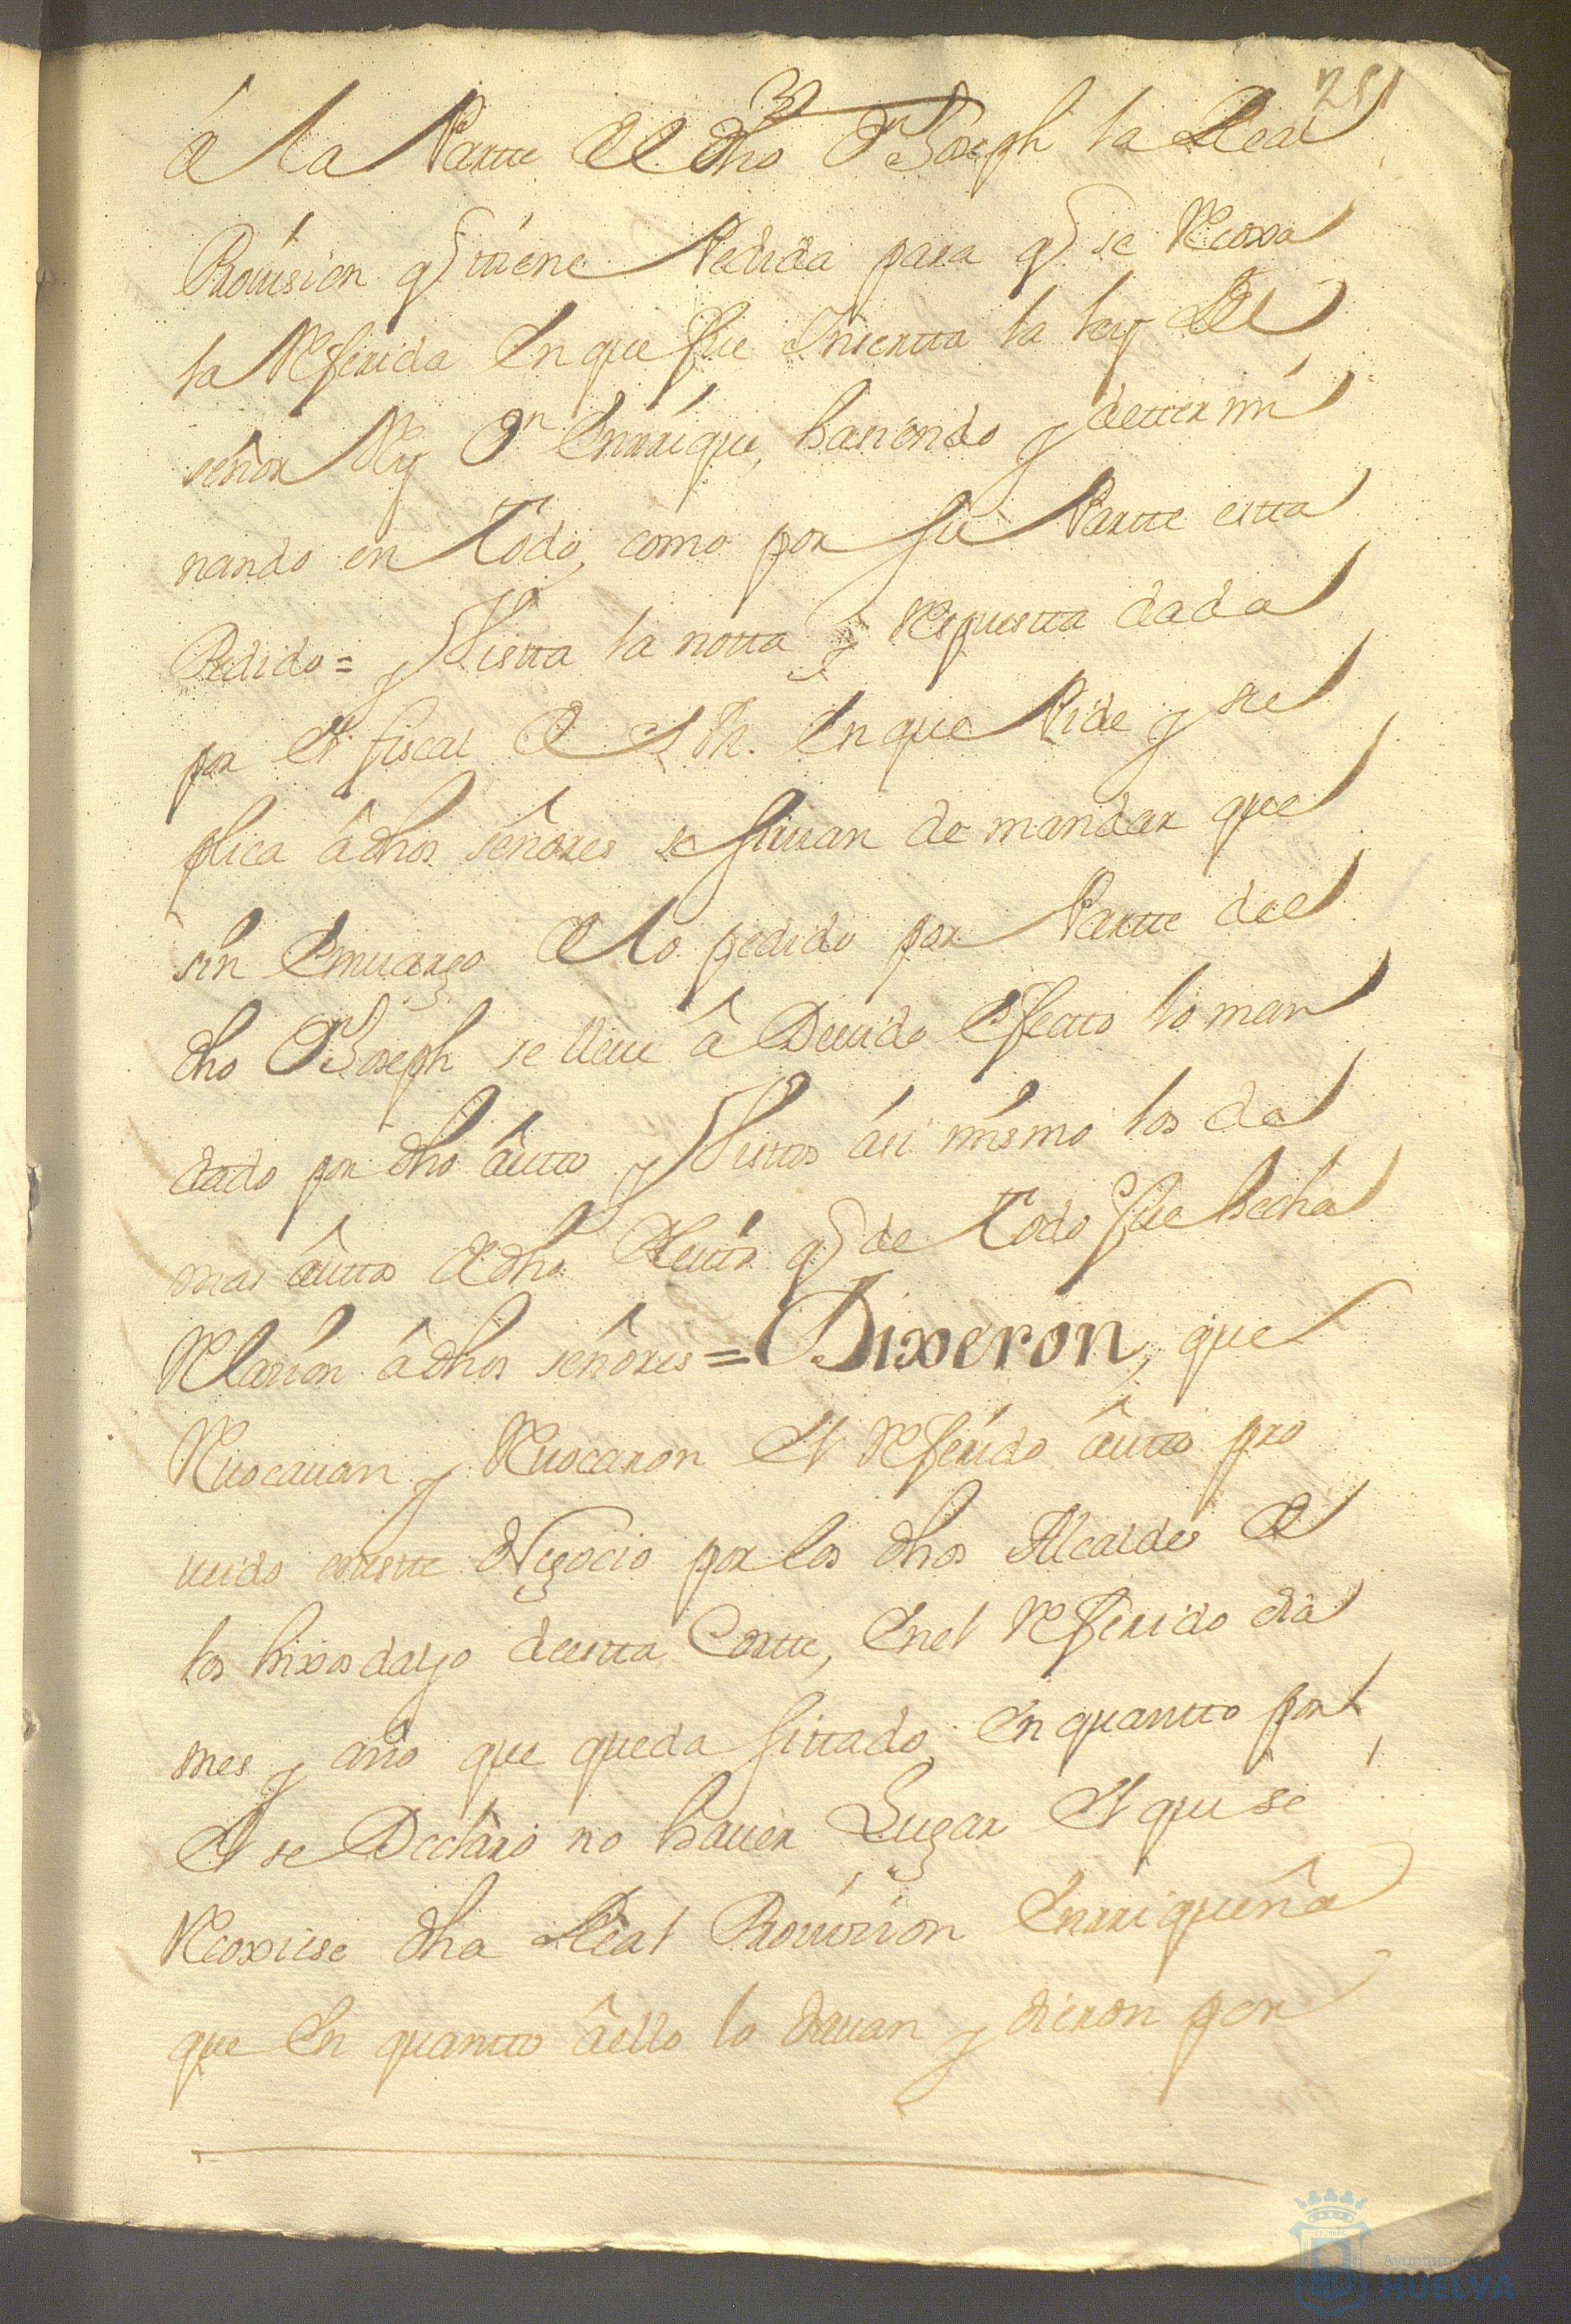 32
251
â la Partte de dho Dn Joseph la Real
Prouision q tiene Pedida para q se Recoxa
la Referida En que fue Ynsertta la ley Del
señor Rey Dn Enrrique, haziendo y detterm̃i
nando en Todo, como por su Partte estta
Pedido = y Vistta la notta y Respuestta dada
por El fiscal de S. M. En que Pide y su
plica â dhos señores se siruan de mandar que
sin Emuargo de lo pedido por Partte del
dho Dn Joseph se lleue â Deuido Efectto lo man
dado por dho âutto y Visttos ási mismo los de
mas âuttos de dho Pleitto q de Todo fue hecha
Relazion â dhos señôres = Dixeron, que
Reuocauan y Reuocaron El Referido âutto pro
ueido en estte Negocio por los dhos Alcaldes de
los hixosdalgo de estta Cortte, En el Referido dia
mes y año que queda sittado, En quantto por
El se Declaro no hauer Lugar El que se
Recoxiese dha Real Prouizion Enrriqueña
que En quantto âello lo dauan y dieron por
Ayuntamiento de
HUELVA